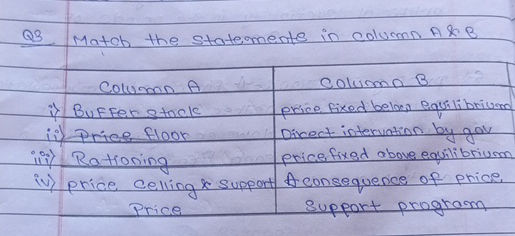 Q3 Match the statements in column A & B
Column A Column B
i) Buffer stock price fixed below equilibrium
ii) Price floor Direct intervation by gov
iii) Rationing price fixed above equilibrium
iv) price Celling & support A consequence of price
Price support program